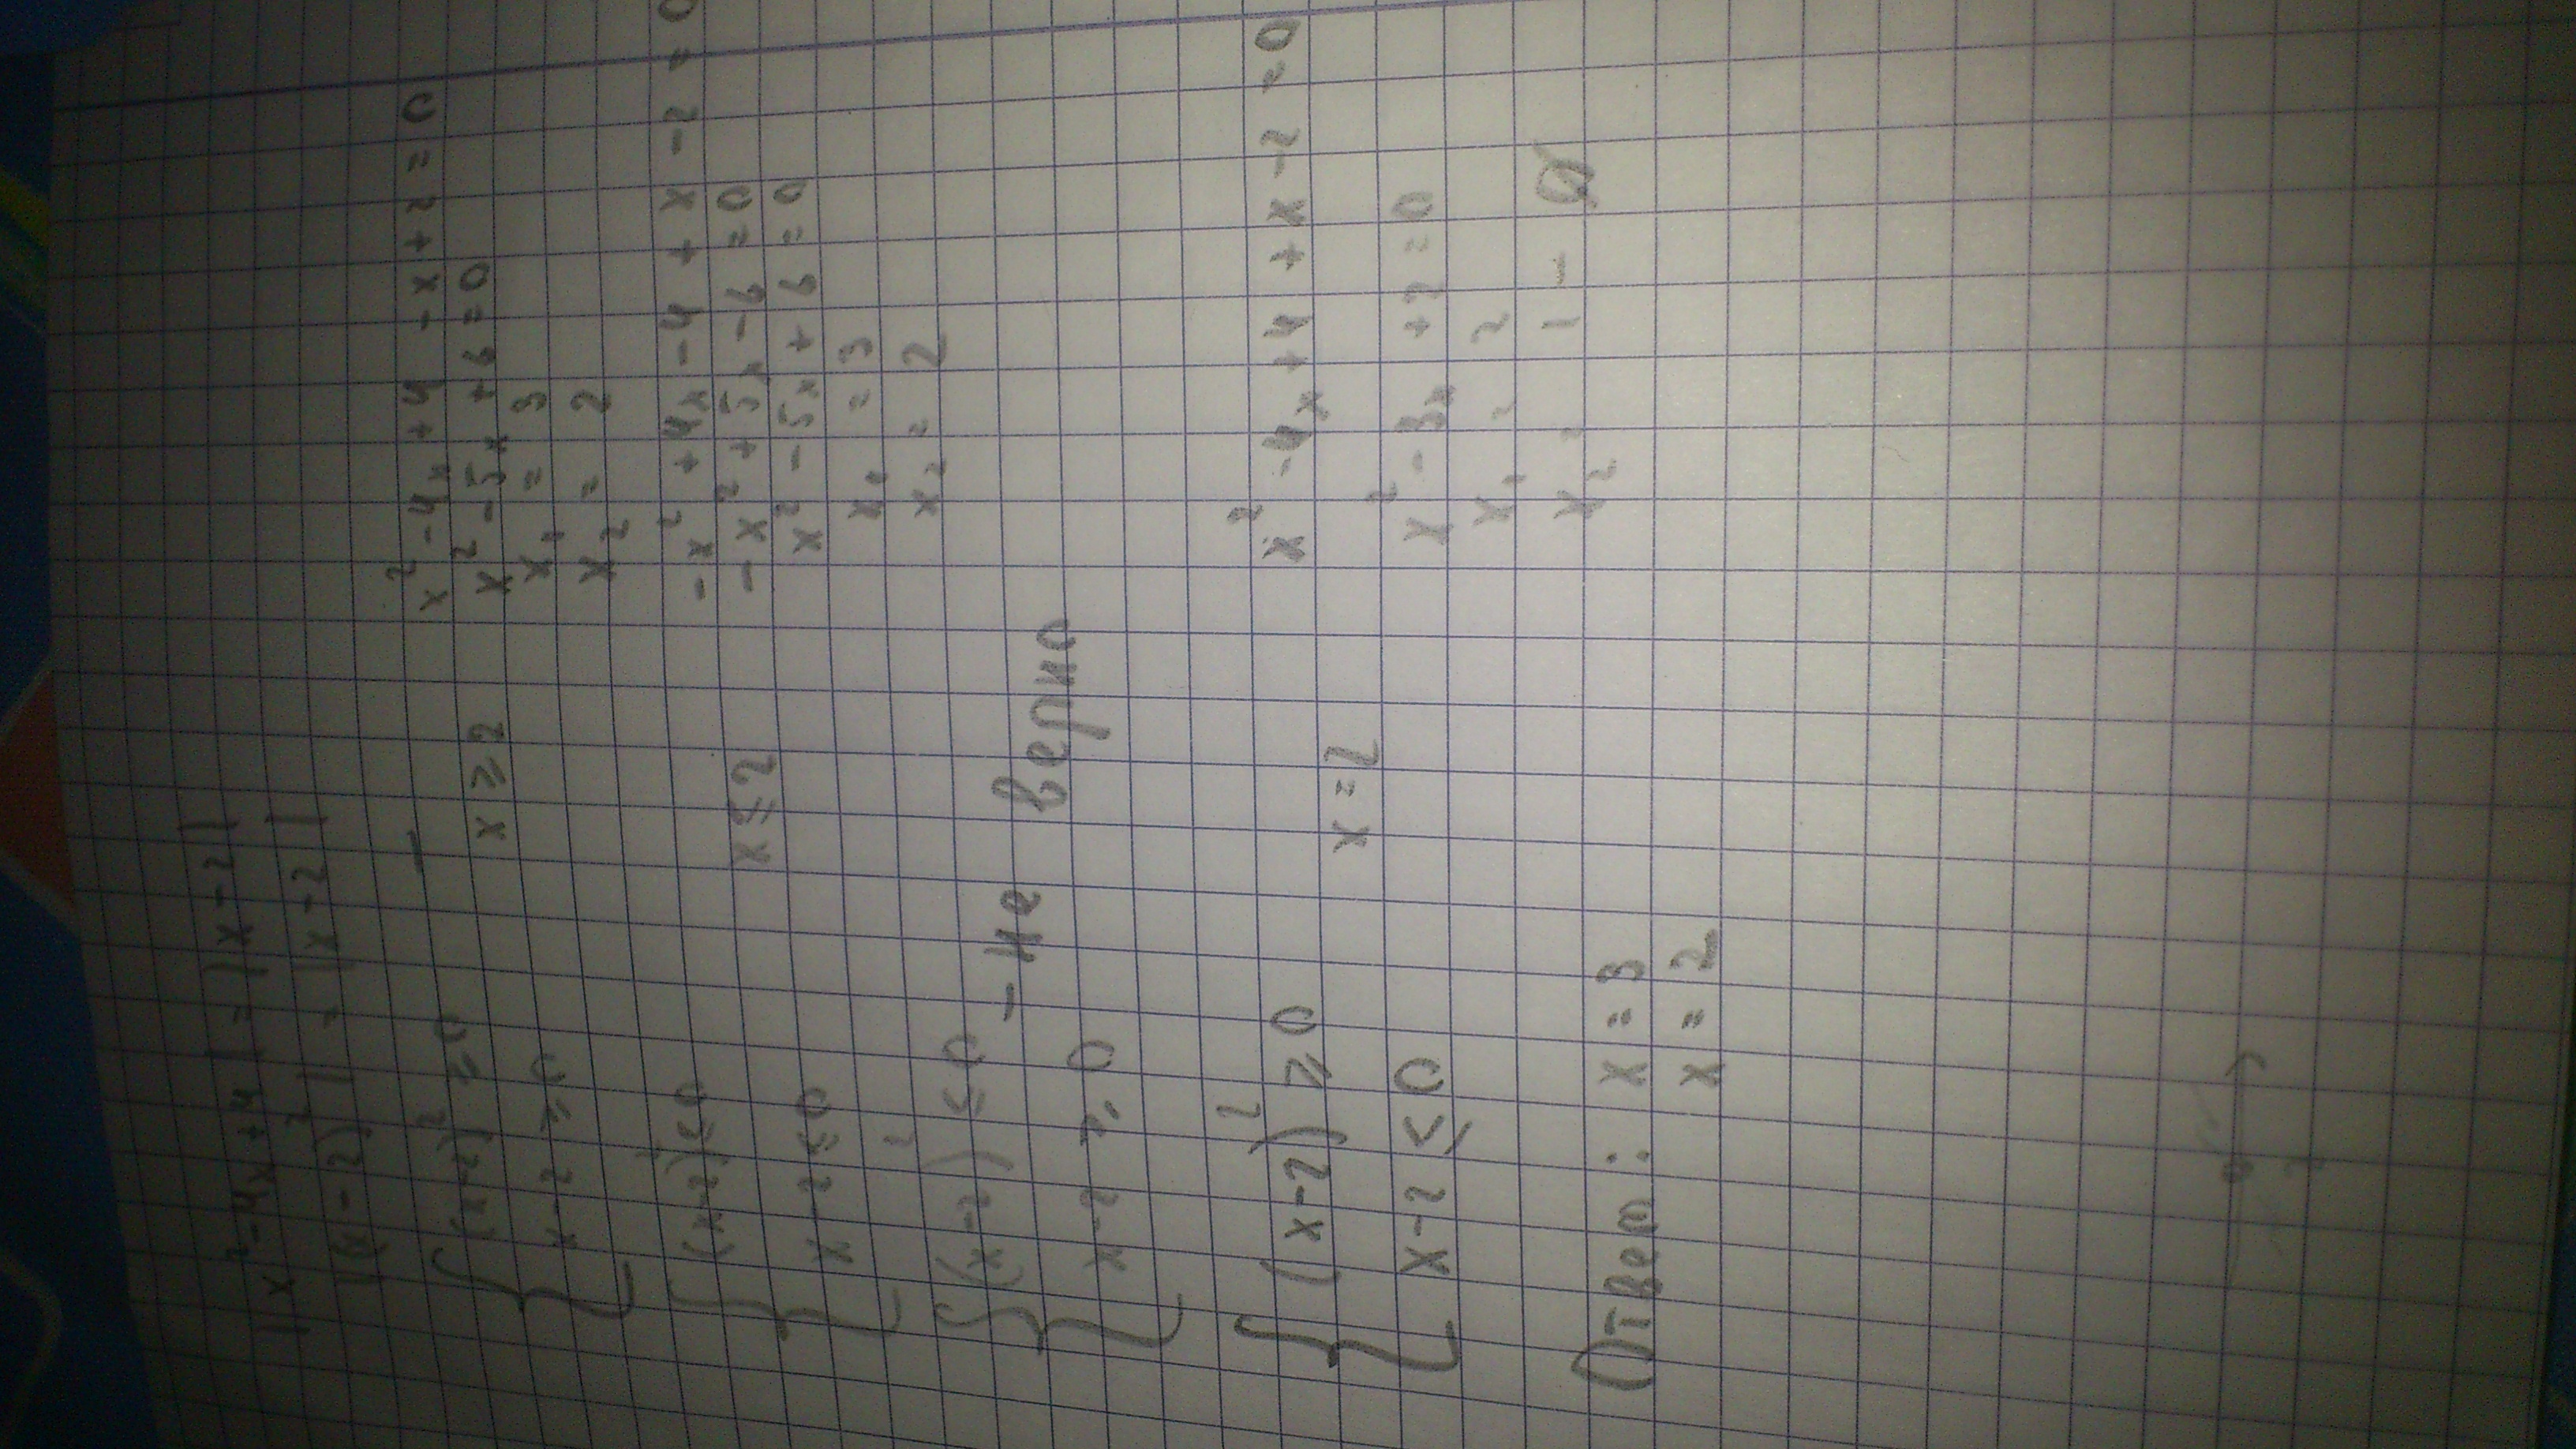 |x² - 4x + 4| = |x - 2|
|(x - 2)²| = |x - 2|
{ (x - 2)² ≥ 0 —
x - 2 ≥ 0
x ≥ 2
x² - 4x + 4 - x + 2 = 0
x² - 5x + 6 = 0
x₁ = 3
x₂ = 2
{ (x - 2)² ≤ 0
x - 2 ≤ 0
x ≤ 2
-x² + 4x - 4 + x - 2 = 0
-x² + 5x - 6 = 0
x² - 5x + 6 = 0
x₁ = 3
x₂ = 2
{ (x - 2)² ≤ 0 - не верно
x - 2 ≥ 0
{ (x - 2)² ≥ 0
x - 2 ≤ 0
x = 2
x² - 4x + 4 + x - 2 = 0
x² - 3x + 2 = 0
x₁ = 2
x₂ = 1 - Ø
Ответ: x = 3
x = 2